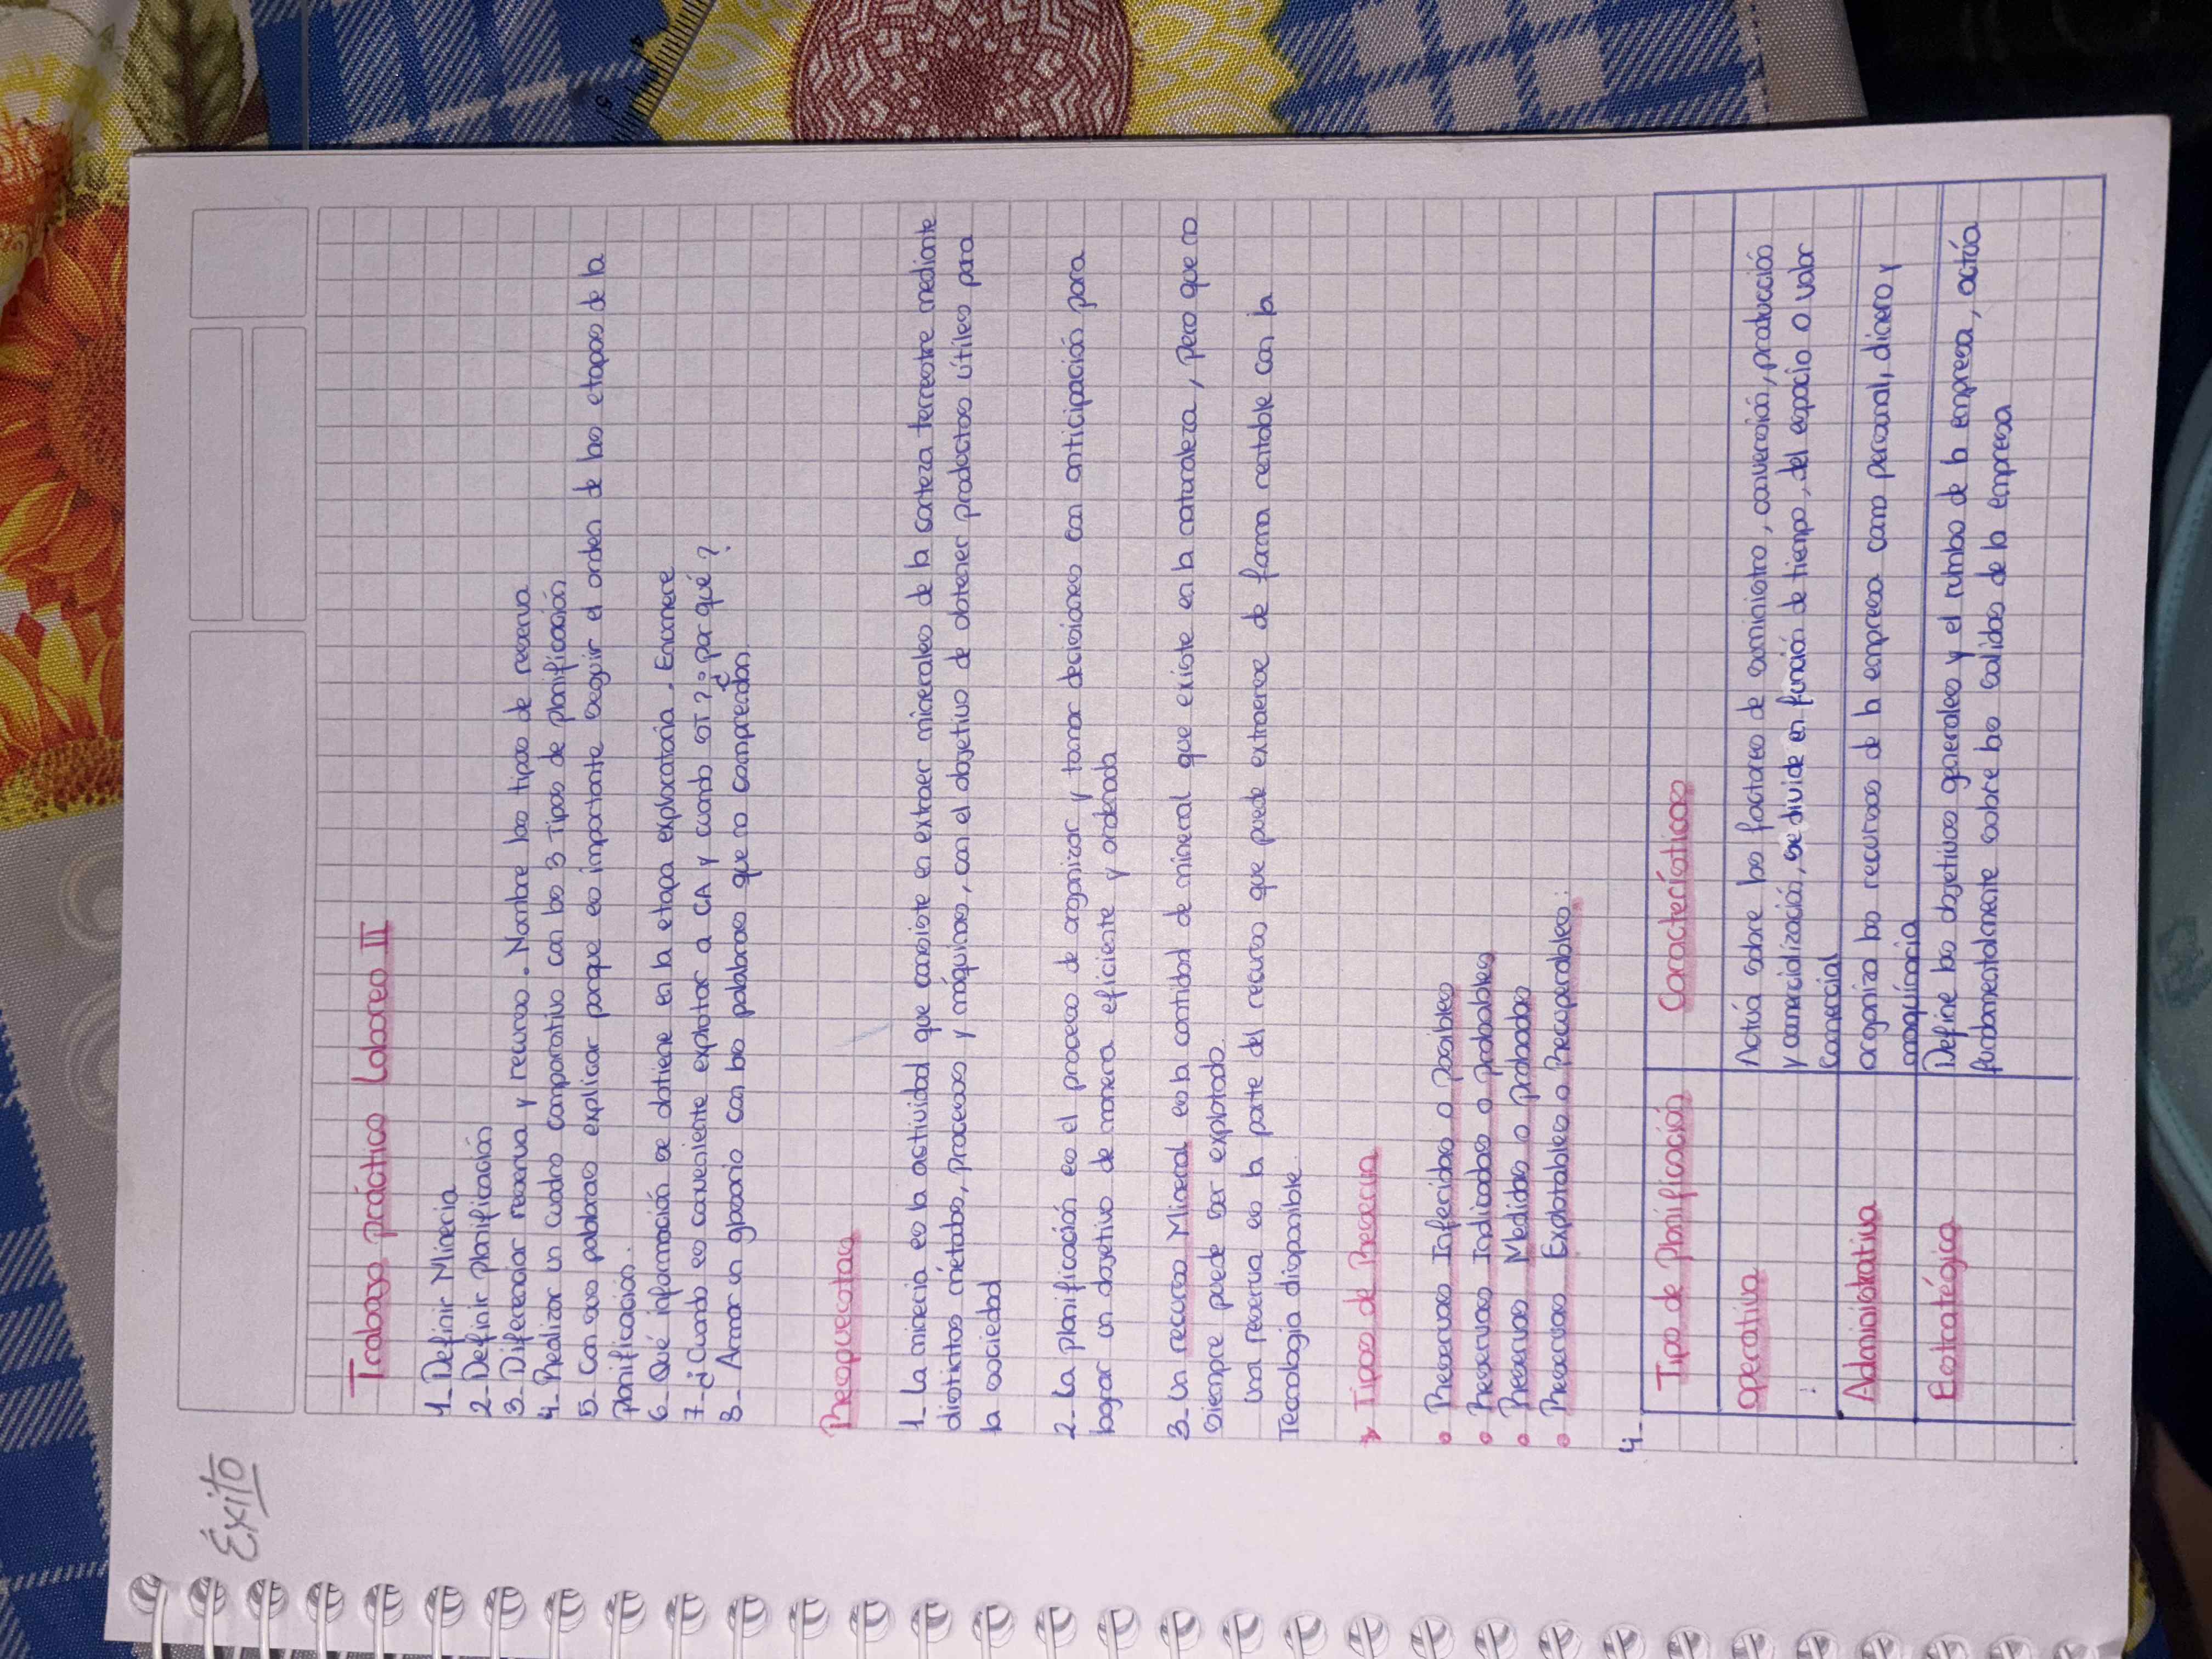 Éxito
Trabajo práctico Laboreo III
1- Definir Mineria
2- Definir planificación
3- Diferenciar reserva y recurso. Nombre los tipos de reserva
4- Realizar un cuadro comparativo con los 3 Tipos de planificación
5- Con sus palabras explicar porque es importante seguir el orden de las etapas de la
planificación.
6- Qué información se obtiene en la etapa exploratoria. Enumere
7- ¿Cuando es conveniente explotar a CA y cuando ST? ¿por qué?
8- Armar un glosario con las palabras que no comprendan.
Respuestas
1- La mineria es la actividad que consiste en extraer minerales de la corteza terrestre mediante
distintos métodos, procesos y máquinas, con el objetivo de obtener productos útiles para
la sociedad
2- La planificación es el proceso de organizar y tomar decisiones con anticipación para
lograr un objetivo de manera eficiente y ordenada
3- Un recurso Mineral es la cantidad de mineral que existe en la naturaleza, pero que no
siempre puede ser explotado.
Una reserva es la parte del recurso que puede extraerse de forma rentable con la
Tecnologia disponible.
Tipos de Reserva
• Reservas Inferidas o posibles
• Reservas Indicadas o probables
• Reservas Medidas o probadas
• Reservas Explotables o Recuperables:
4-
Tipo de planificación Características
operativa
Actúa sobre los factores de suministro, conversión, producción
y comercialización, se divide en función de tiempo, del espacio o valor
comercial
Administrativa
organiza los recursos de la empresa como personal, dinero y
maquinaria
Estratégica
Define los objetivos generales y el rumbo de la empresa, actúa
fundamentalmente sobre las salidas de la empresa